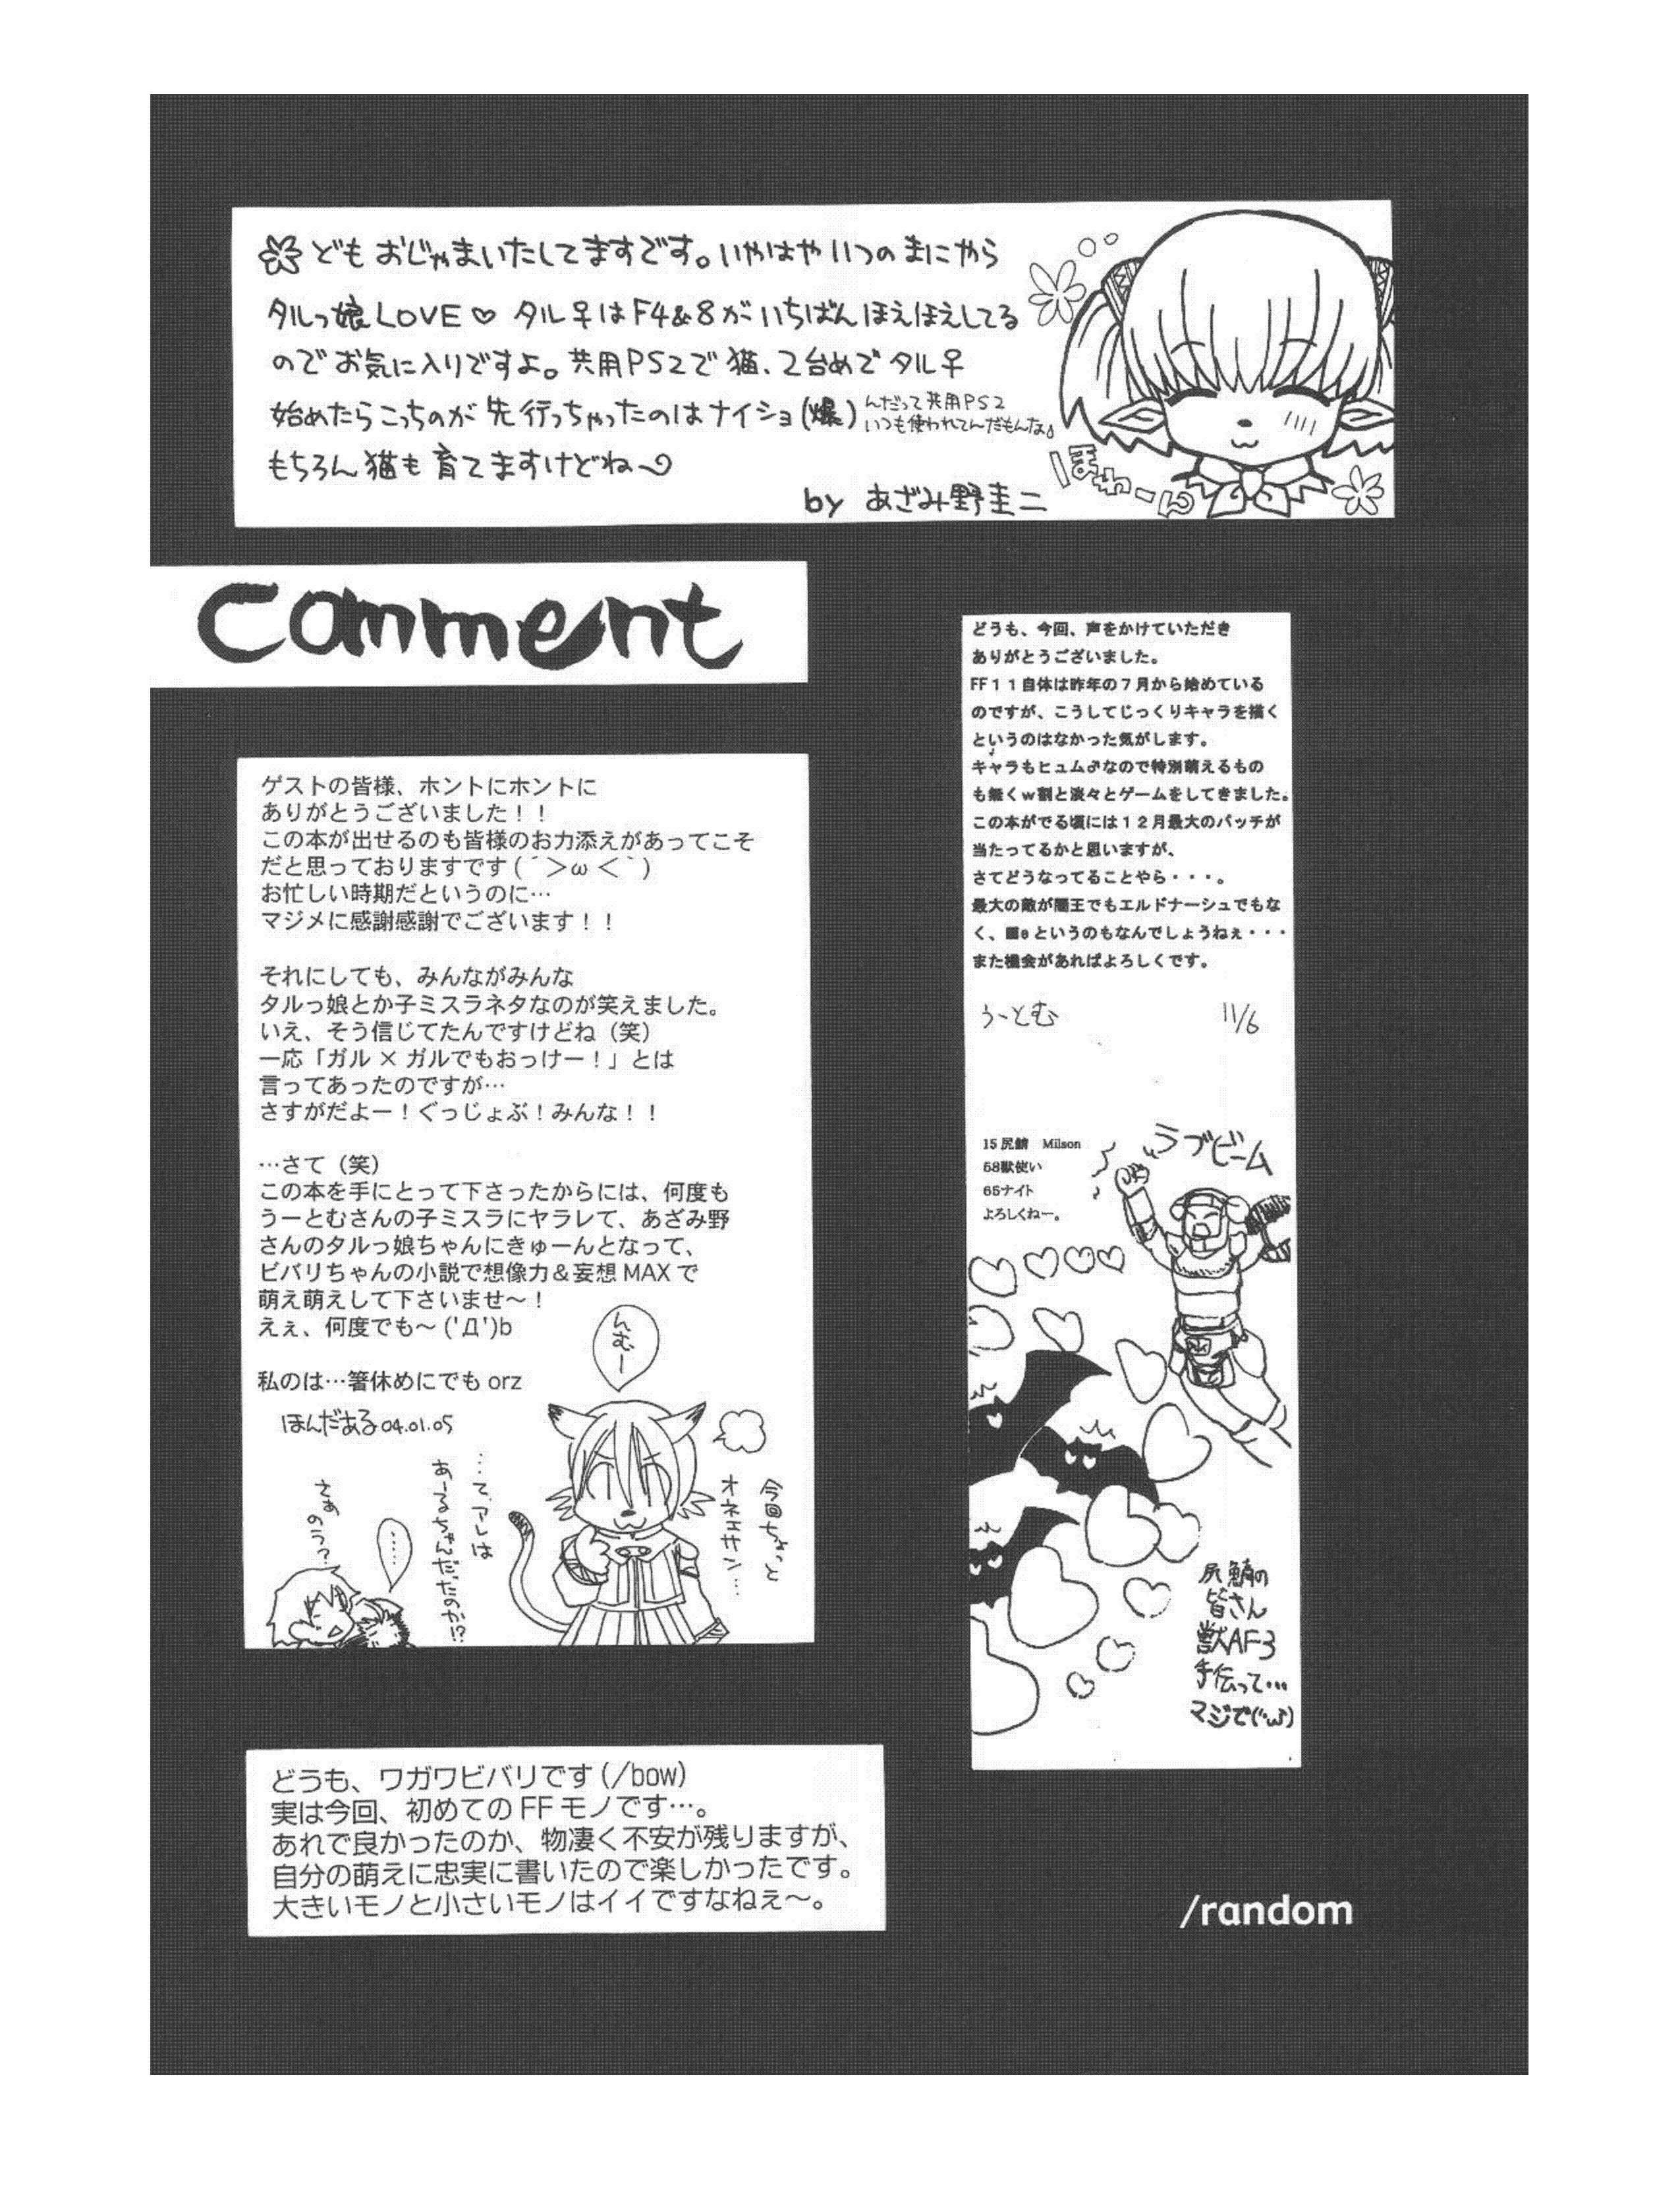 どもおじゃまいたしてますです。いやはやいつのまにやら
タルっ娘LOVE♡ タル♀はF4&8がいちばんほえほえしてる
のでお気に入りですよ。共用PS2で猫、2台めでタル♀
始めたらこっちのが先行っちゃったのはナイショ(爆)
んだって共用PS2
いつも使われてんだもんなぁ
もちろん猫も育てますけどね〜
by あざみ野圭二
ほわーん
Comment
どうも、今回、声をかけていただき
ありがとうございました。
FF11自体は昨年の7月から始めている
のですが、こうしてじっくりキャラを描く
というのはなかった気がします。
キャラもヒュム♂なので特別萌えるもの
も無くw割と淡々とゲームをしてきました。
この本がでる頃には12月最大のパッチが
当たってるかと思いますが、
さてどうなってることやら・・・。
最大の敵が闇王でもエルドナーシュでもな
く、■eというのもなんでしょうねぇ・・・
また機会があればよろしくです。
うーとむ 11/6
15尻鯖 Milson
58獣使い
65ナイト
よろしくねー。
ラブビーム
尻鯖の
皆さん
獣AF3
手伝って…
マジで(;'ω;)
ゲストの皆様、ホントにホントに
ありがとうございました！！
この本が出せるのも皆様のお力添えがあってこそ
だと思っておりますです(´＞ω＜｀)
お忙しい時期だというのに…
マジメに感謝感謝でございます！！
それにしても、みんながみんな
タルっ娘とか子ミスラネタなのが笑えました。
いえ、そう信じてたんですけどね（笑）
一応「ガル×ガルでもおっけー！」とは
言ってあったのですが…
さすがだよー！ぐっじょぶ！みんな！！
…さて（笑）
この本を手にとって下さったからには、何度も
うーとむさんの子ミスラにヤラレて、あざみ野
さんのタルっ娘ちゃんにきゅーんとなって、
ビバリちゃんの小説で想像力＆妄想MAXで
萌え萌えして下さいませ〜！
えぇ、何度でも〜('Д')b
私のは…箸休めにでもorz
ほんだある04.01.05
んむー
今回ちょっと
オネエサン…
…て、アレは
あーるちゃんだたのか!?
……
さぁ
のう？
どうも、ワガワビバリです(/bow)
実は今回、初めてのFFモノです…。
あれで良かったのか、物凄く不安が残りますが、
自分の萌えに忠実に書いたので楽しかったです。
大きいモノと小さいモノはイイですなねぇ〜。
/random